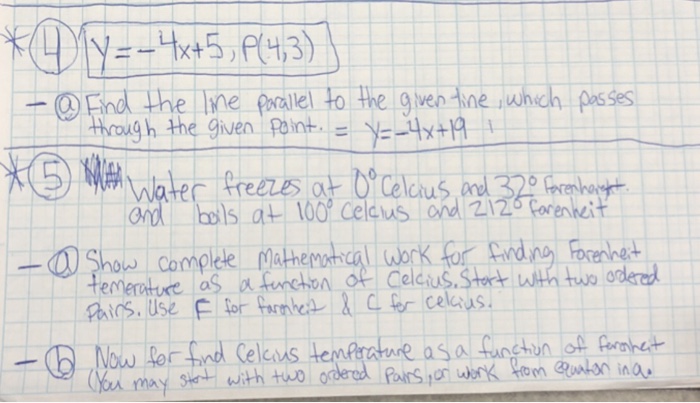 * 4 y=-4x+5, P(4,3)
- a Find the line parallel to the given line, which passes
through the given point. = y=-4x+19
* 5 Water freezes at 0° Celcius and 32° Farenheight
and boils at 100° celcius and 212° farenheit
- a Show complete mathematical work for finding Farenheit
temerature as a function of Celcius. Start with two ordered
pairs. Use F for farenheit & C for celcius.
- b Now for find Celcius temperature as a function of farenheit
(You may start with two ordered pairs, or work from equation in a.